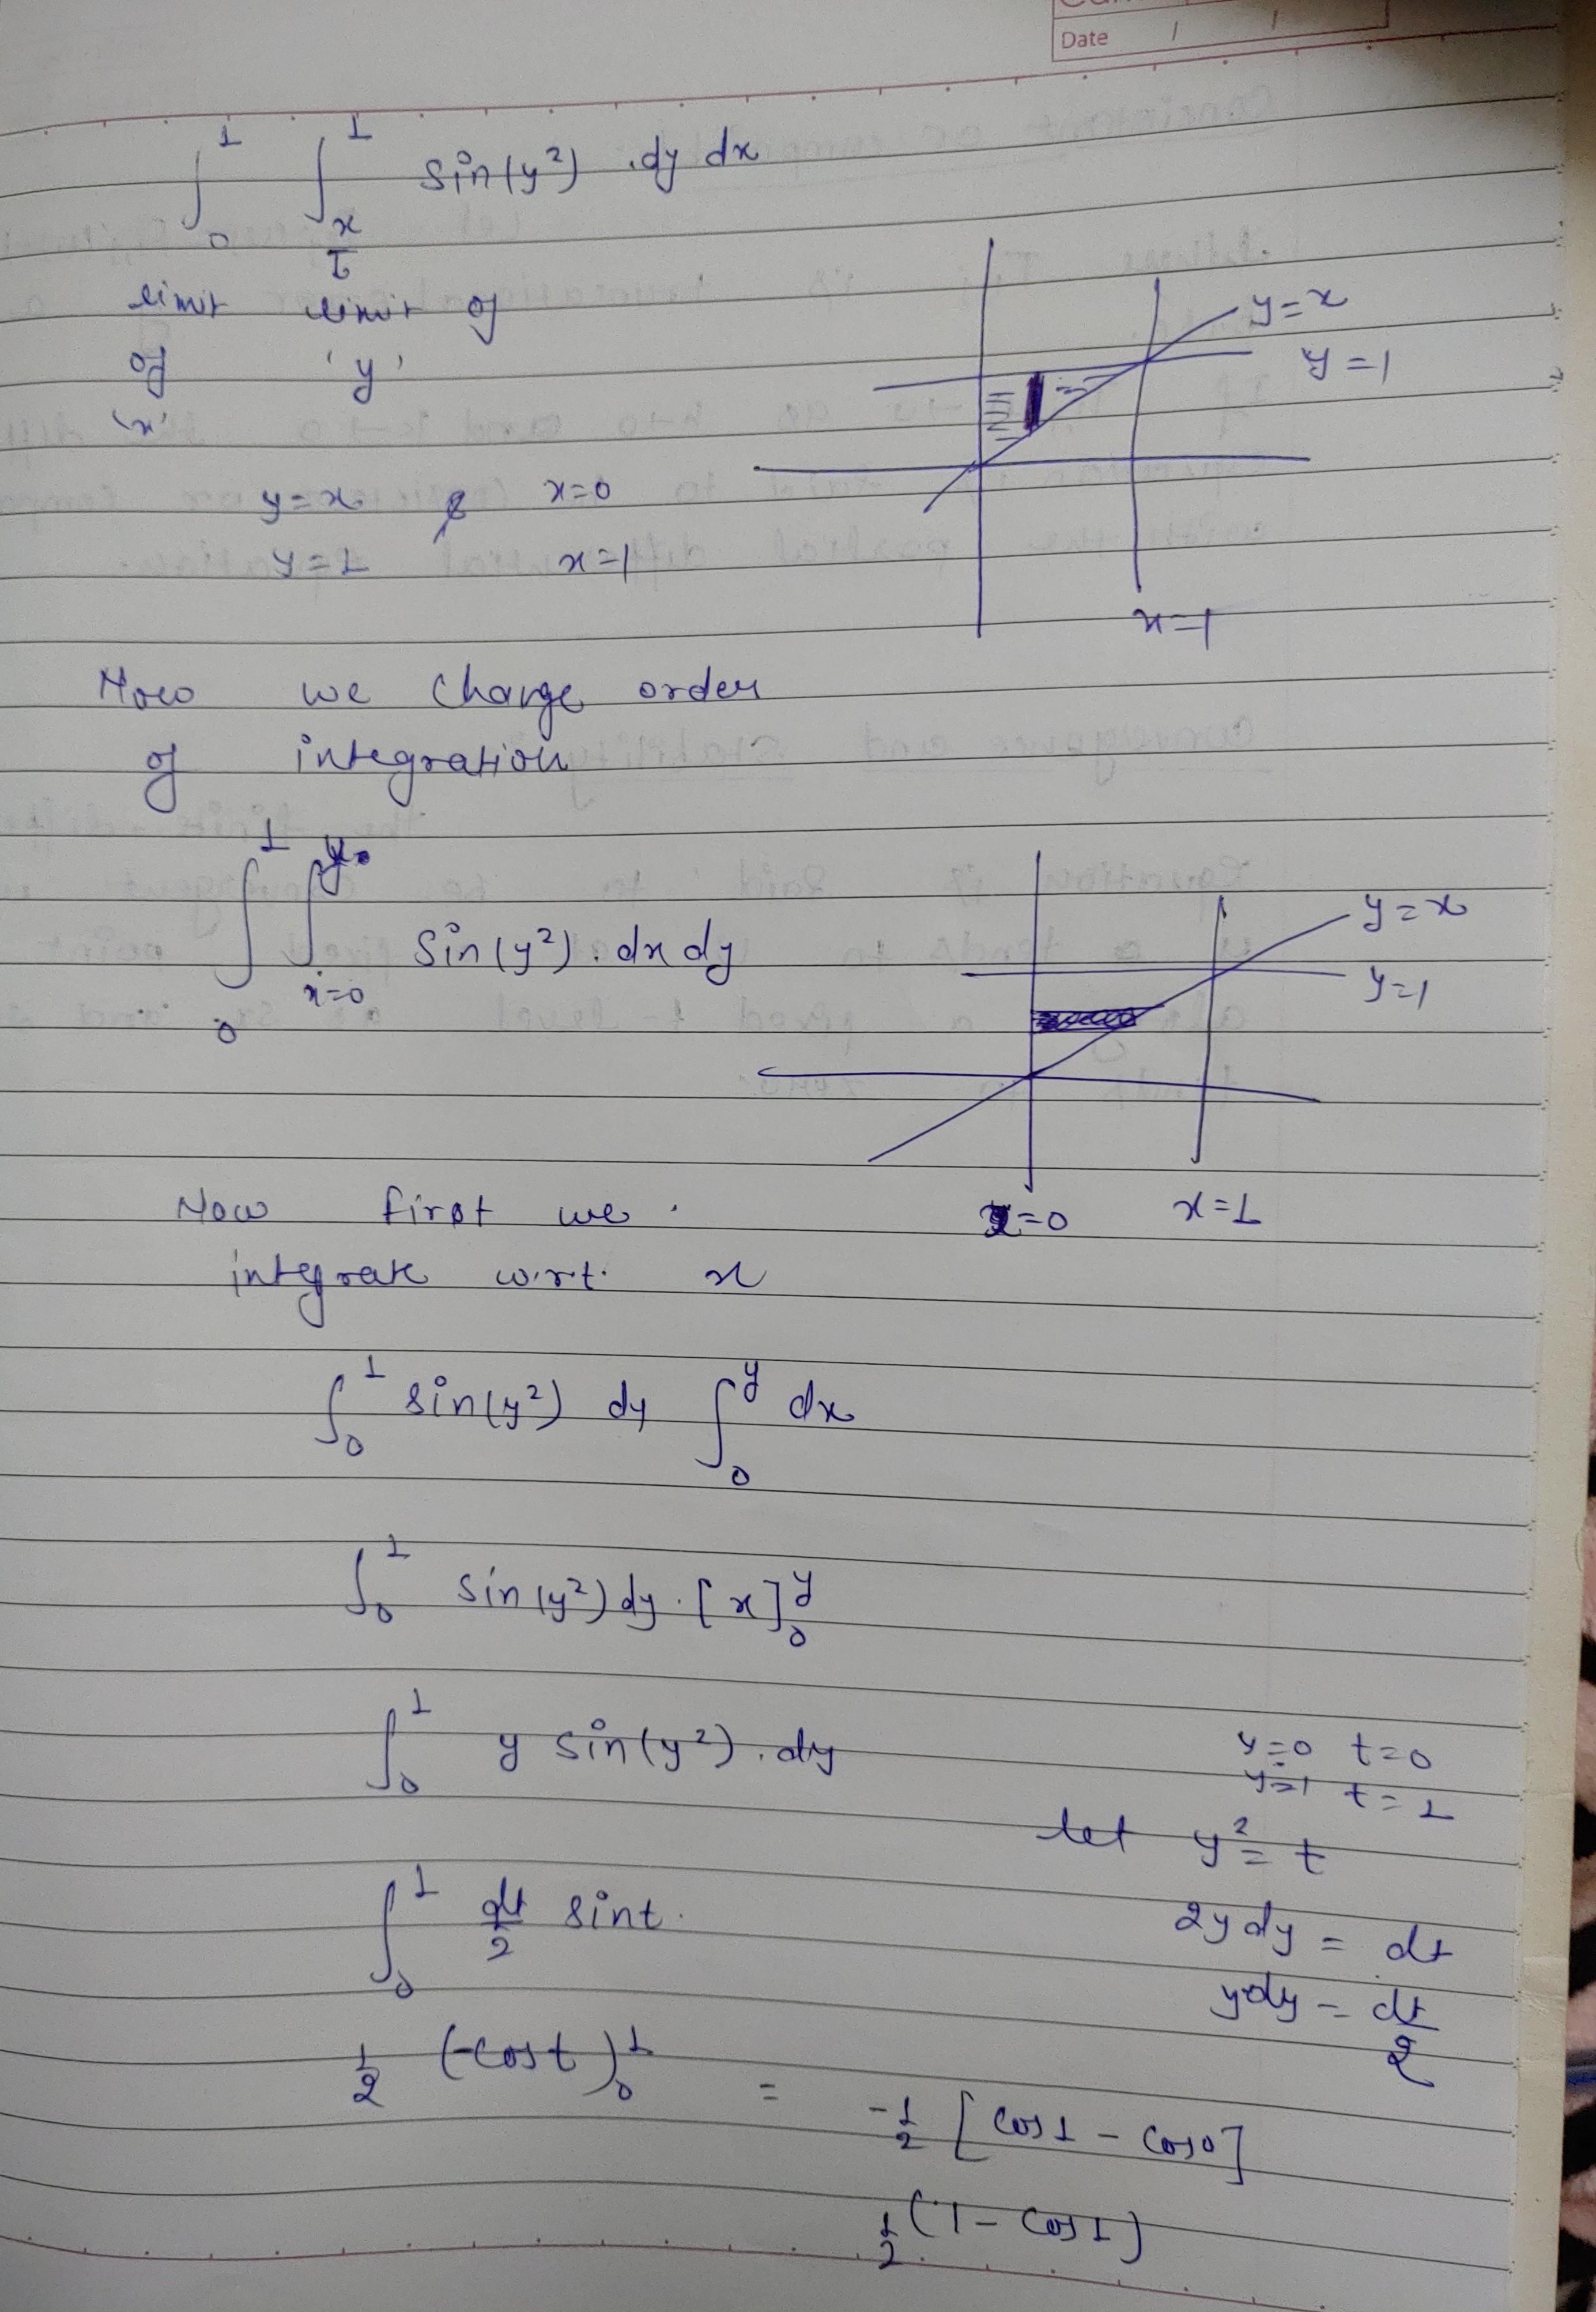 Date / /
∫₀¹ ∫ₓ¹ sin(y²) .dy dx
limit limit of
of 'y'
'x'
y=x
y=1
y=x & x=0
y=1 x=1
x=1
Now we change order
of integration
∫₀¹ ∫ₓ₌₀ʸ sin(y²). dx dy
y=x
y=1
x=0 x=1
Now first we
integrate w.r.t. x
∫₀¹ sin(y²) dy ∫₀ʸ dx
∫₀¹ sin(y²) dy . [x]₀ʸ
∫₀¹ y sin(y²) . dy
y=0 t=0
y=1 t=1
let y² = t
∫₀¹ dt/2 sint.
2y dy = dt
y dy = dt/2
1/2 (-cost)₀¹ = -1/2 [cos1 - cos0]
1/2 (1 - cos1)